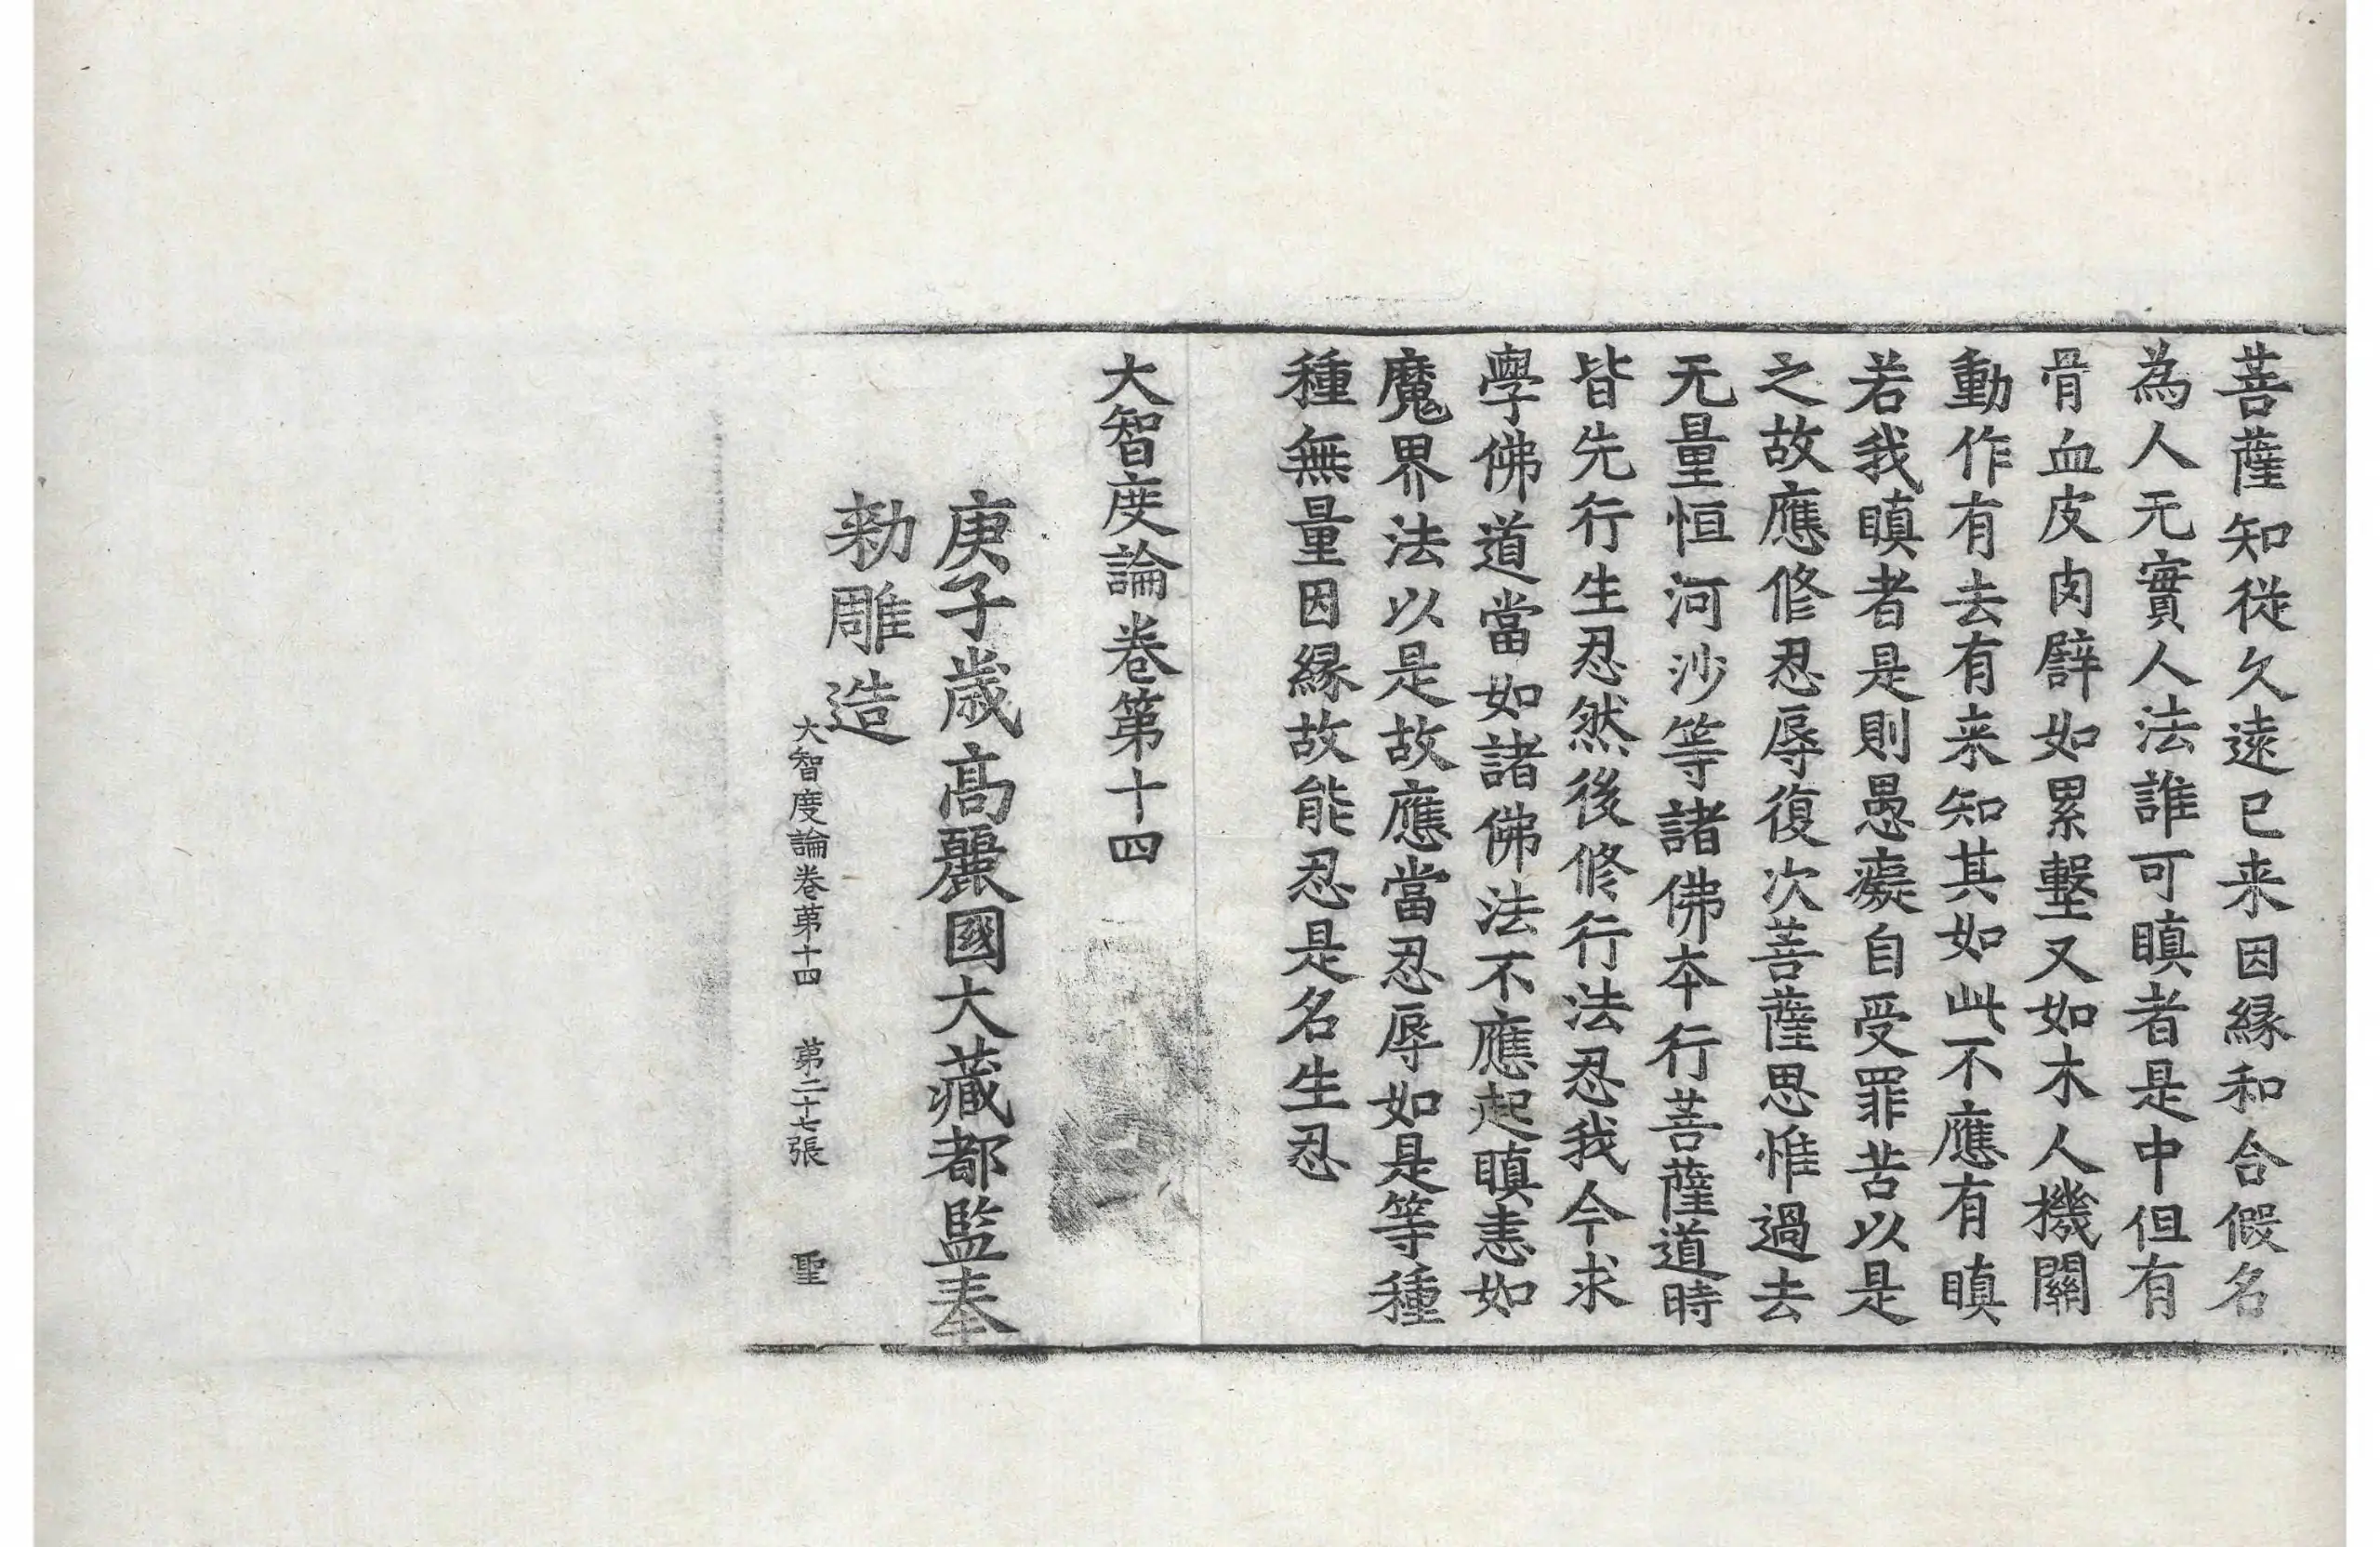 菩薩知從久遠已来因縁和合假名
為人无實人法誰可瞋者是中但有
骨血皮肉譬如累墼又如木人機關
動作有去有来知其如此不應有瞋
若我瞋者是則愚癡自受罪苦以是
之故應修忍辱復次菩薩思惟過去
无量恒河沙等諸佛本行菩薩道時
皆先行生忍然後修行法忍我今求
學佛道當如諸佛法不應起瞋恚如
魔界法以是故應當忍辱如是等種
種無量因縁故能忍是名生忍
大智度論卷第十四
庚子歳高麗國大藏都監奉
勑雕造
大智度論卷第十四 第二十七張 聖